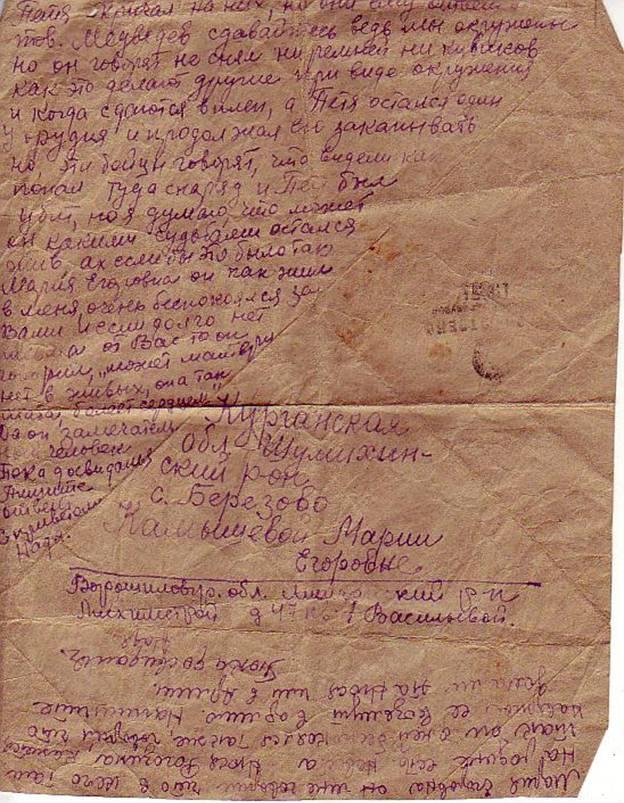 Петя кричал на них, но они ему
тов. Медведев сдавайтесь ведь мы окружены
но он говорят не снял ни ремней ни кубиков
как это делают другие при виде окружения
и когда сдаются в плен, а Петя остался один
у орудия и продолжал его закапывать
но, эти бойцы говорят, что видели как
попал туда снаряд и Петя был
убит, но я думаю, что может
он какими судьбами остался
жив ах если бы это было так
Мария Егоровна он так жил
в меня, очень беспокоился за
Вами и если долго нет
от Вас то он
говорил, "может мамы
нет в живых, она так
сердцем"
Да он замечатель
ный человек
Пока досвидания
Пишите
ответ
с приветом
Надя.
Курганская
обл Шумихин-
ский р-он
с. Березово
Камышевой Марии
Егоровне
Ворошиловгр. обл. ский р-н
д 47 кв. 1 Васильевой.
Мария Егоровна он мне говорил что в него там
на родине есть невеста Нюся
так он о ней беспокоился также, говорил, что
наверное ее возьмут в армию. Напишите
дома ли Нюся или в армии.
Пока досвидания.
Надя